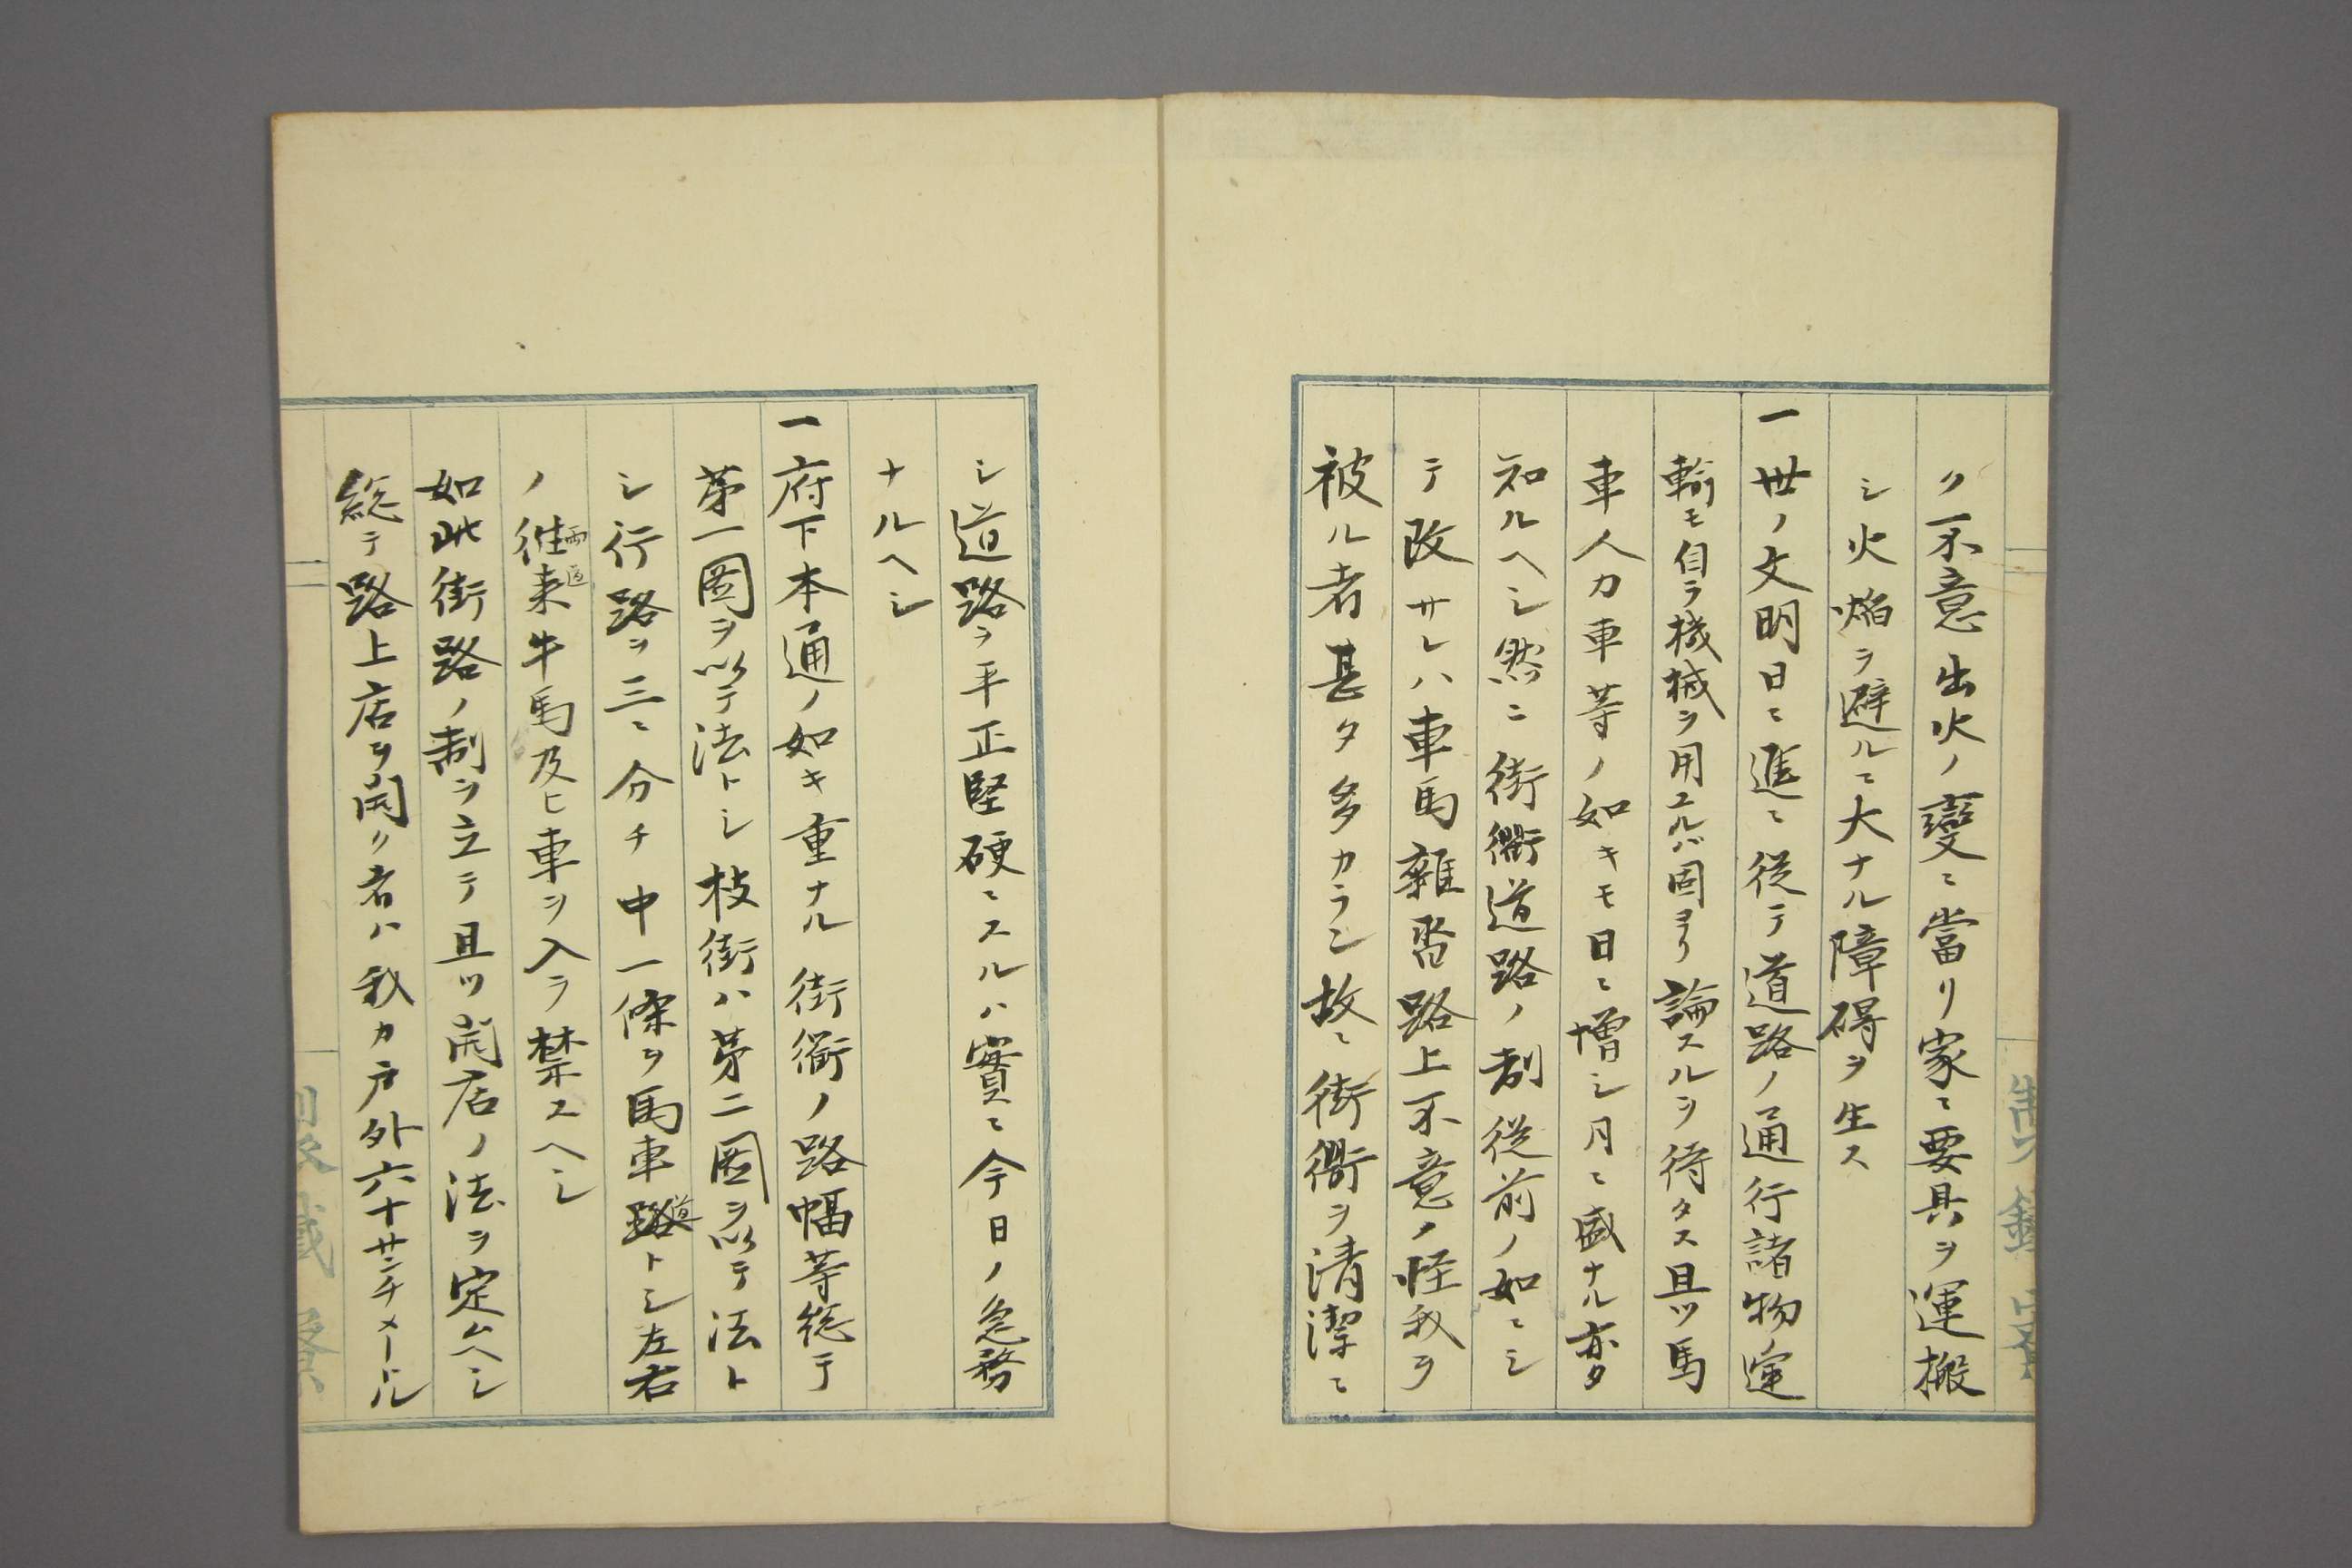 ク不意出火ノ變ニ當リ家ニ要具ヲ運搬
シ火焔ヲ避ルニ大ナル障碍ヲ生ス
一世ノ文明日ニ進ミ從テ道路ノ通行諸物ノ運
輸モ自ラ機械ヲ用ユルハ固ヨリ論スルヲ待タス且ツ馬
車人力車等ノ如キモ日ニ増シ月ニ盛ナル亦タ
知ルヘシ然ニ街衢道路ノ制従前ノ如ニシ
テ改サレハ車馬雜沓路上不意ノ怪我ヲ
被ル者甚タ多カラン故ニ街衢ヲ清潔ニ
シ道路ヲ平正堅硬ニスルハ實ニ今日ノ急務
ナルヘシ
一府下本通ノ如キ重ナル街衢ノ路幅等総テ
第一圖ヲ以テ法トシ枝街ハ第二圖ヲ以テ法ト
シ行路ヲ三ニ分チ中一條ヲ馬車道トシ左右
ノ両道往来牛馬及ヒ車ヲ入ヲ禁スヘシ
如此街路ノ制ヲ立テ且ツ開店ノ法ヲ定ムヘシ
総テ路上店ヲ開ク者ハ我カ戸外六十サンチメートル